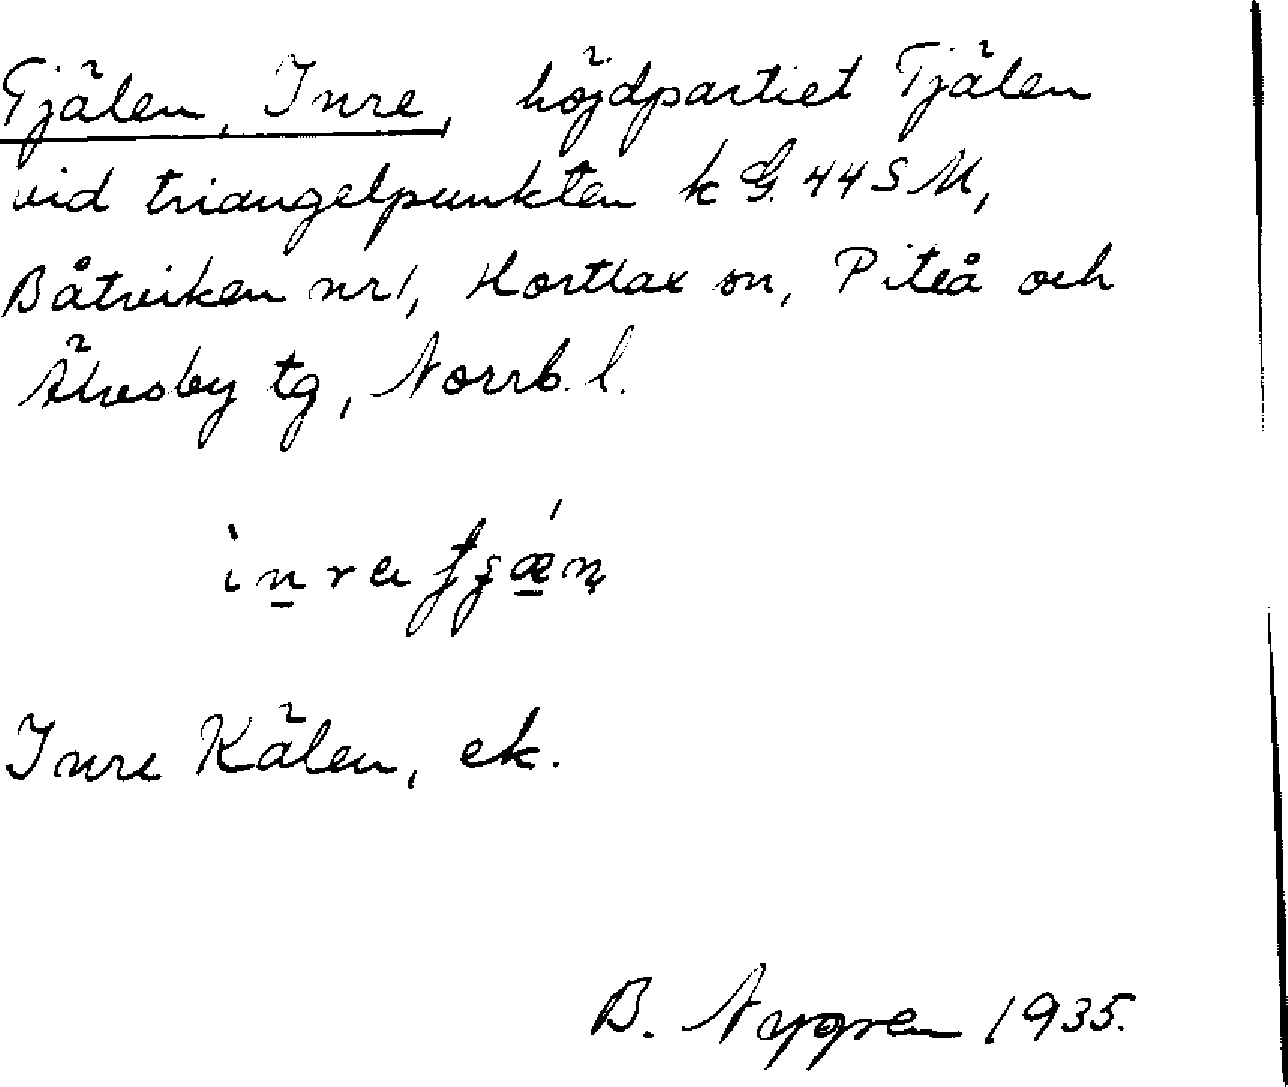 Tjälen, Inre, höjdpartiet Tjälen
vid triangelpunkten k G. 44 S M,
Båtviken nr 1, Hortlax sn, Piteå och
Älvsby tg, Norrb. l.
Inre Kälen, ek.
B. Nygren 1935.